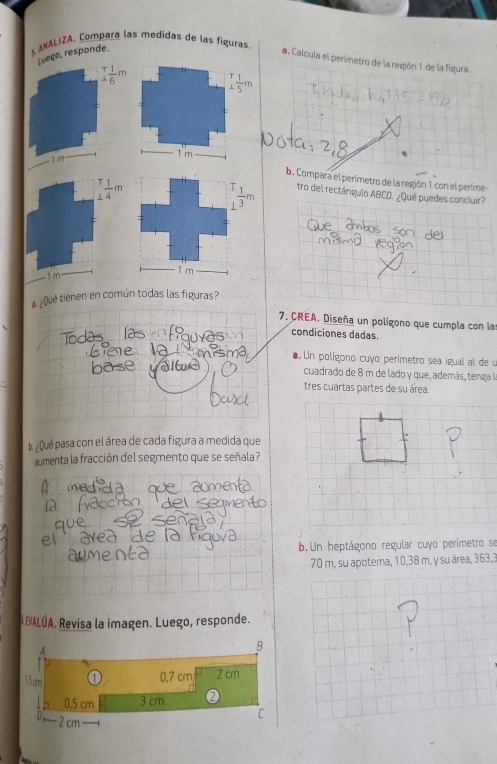 5. ANALIZA. Compara las medidas de las figuras.
Luego, responde.
1/6 m
1/5 m
1 m
1 m
1/4 m
1/3 m
1 m
1 m
a. ¿Qué tienen en común todas las figuras?
Todas las figuras
tiene la misma
base y altura
b. ¿Qué pasa con el área de cada figura a medida que
aumenta la fracción del segmento que se señala?
A medida que aumenta
la fracción del segmento
que se señala,
el area de la figura
aumenta
EVALÚA. Revisa la imagen. Luego, responde.
A
B
1,5 cm
1
0,7 cm
2 cm
0,5 cm
3 cm
2
D
2 cm
C
a. Calcula el perímetro de la región 1 de la figura.
Nota: 2,8
b. Compara el perímetro de la región 1 con el períme-
tro del rectángulo ABCD. ¿Qué puedes concluir?
Que ambos son del
mismo region
7. CREA. Diseña un polígono que cumpla con las
condiciones dadas.
a. Un polígono cuyo perímetro sea igual al de u
cuadrado de 8 m de lado y que, además, tenga l
tres cuartas partes de su área.
?
b. Un heptágono regular cuyo perímetro se
70 m, su apotema, 10,38 m, y su área, 363,3
?